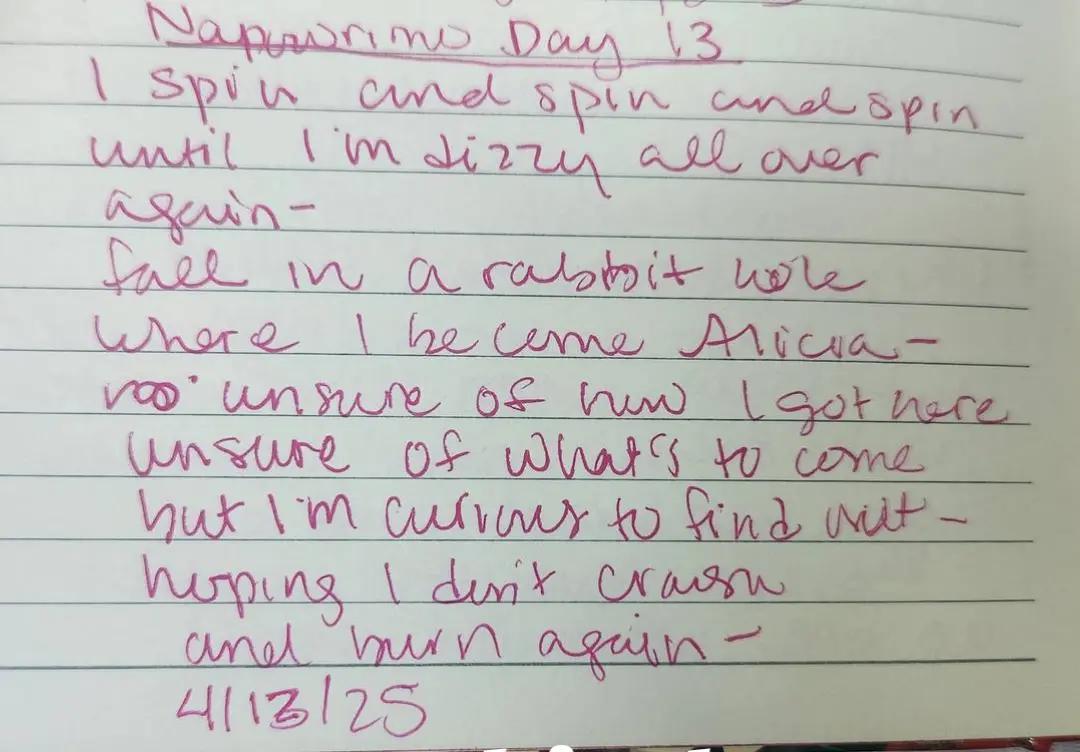 Napowrimo Day 13
I spin and spin and spin
until I'm dizzy all over
again-
fall in a rabbit hole
where I become Alicia-
unsure of how I got here
unsure of what's to come
but I'm curious to find out-
hoping I don't crash
and burn again-
4/13/25